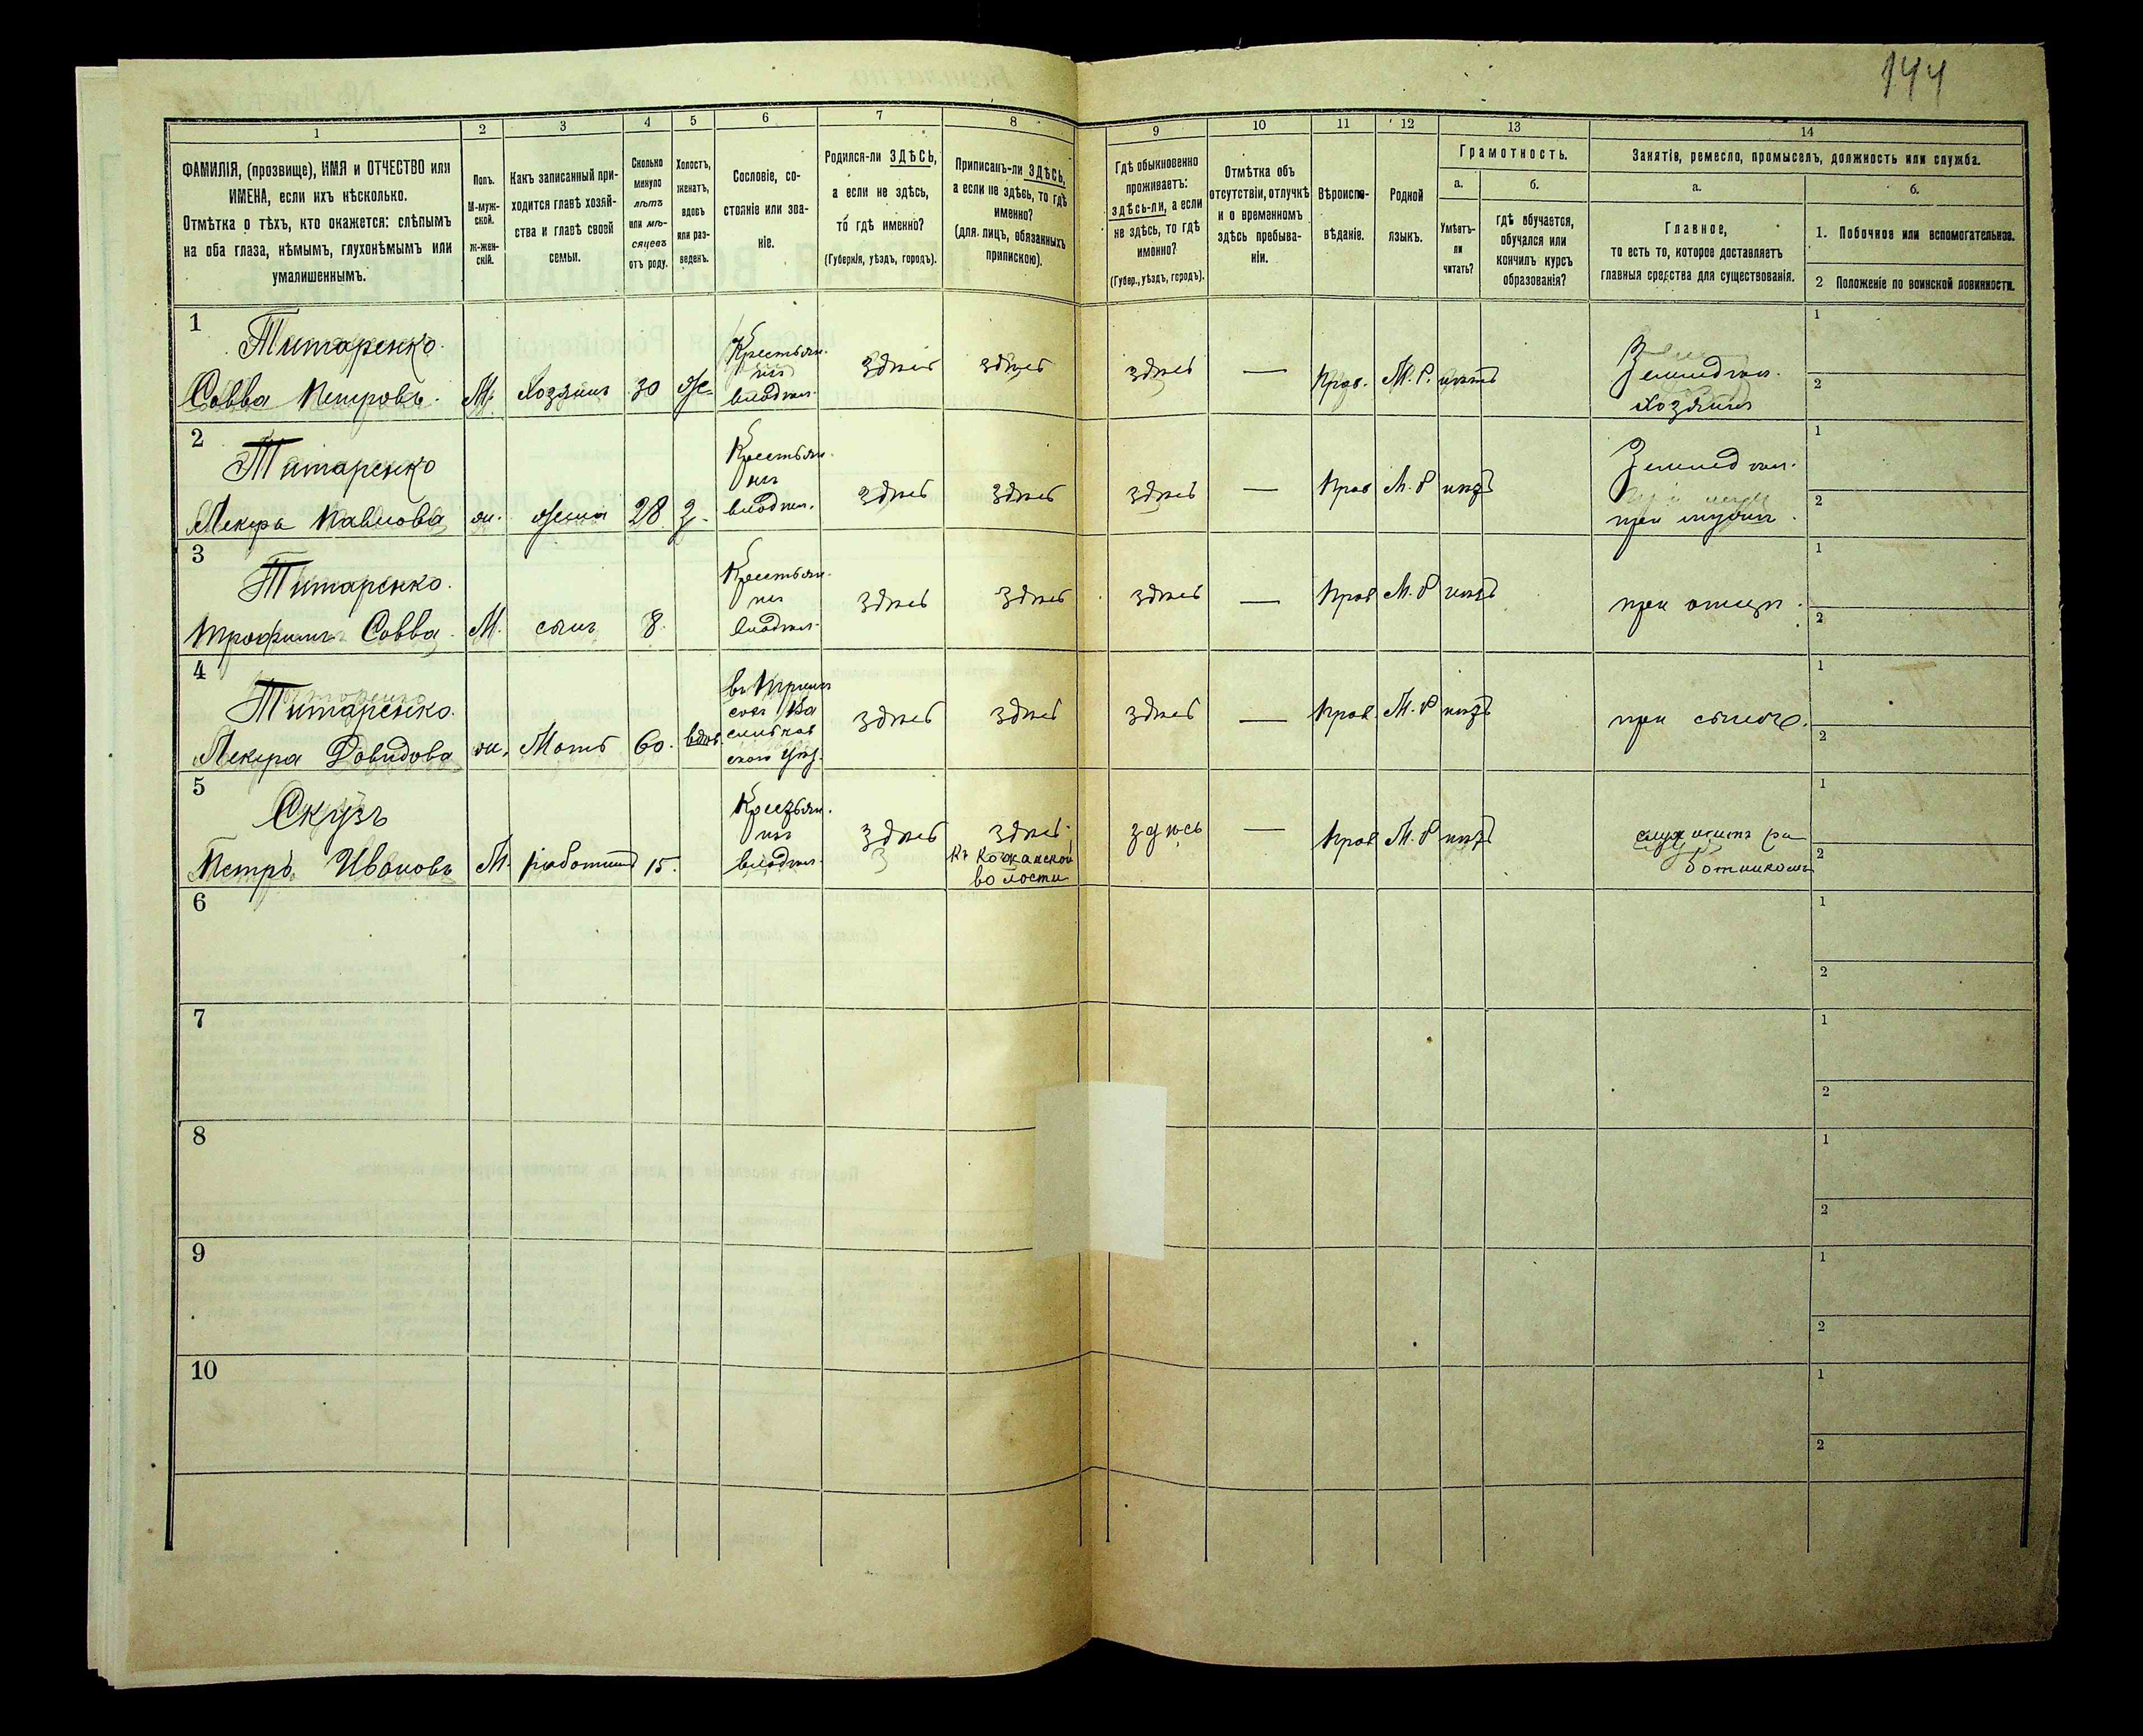 144
1 2 3 4 5 6 7 8 9 10 11 12 13 14
ФАМИЛІЯ, (прозвище), ИМЯ и ОТЧЕСТВО или
ИМЕНА, если ихъ нѣсколько.
Отмѣтка о тѣхъ, кто окажется: слѣпымъ
на оба глаза, нѣмымъ, глухонѣмымъ или
умалишеннымъ.
Полъ.
М-муж-
ской.
ж-жен-
скій.
Какъ записанный при-
ходится главѣ хозяй-
ства и главѣ своей
семьи.
Сколько
минуло
лѣтъ
или мѣ-
сяцевъ
отъ роду.
Холостъ,
женатъ,
вдовъ
или раз-
веденъ.
Сословіе, со-
стояніе или зва-
ніе.
Родился-ли ЗДѢСЬ,
а если не здѣсь,
то гдѣ именно?
(Губернія, уѣздъ, городъ).
Приписанъ-ли ЗДѢСЬ,
а если не здѣсь, то гдѣ
именно?
(для лицъ, обязанныхъ
припискою).
Гдѣ обыкновенно
проживаетъ:
здѣсь-ли, а если
не здѣсь, то гдѣ
именно?
(Губер., уѣздъ, городъ).
Отмѣтка объ
отсутствіи, отлучкѣ
и о временномъ
здѣсь пребыва-
ніи.
Вѣроиспо-
вѣданіе.
Родной
языкъ.
Грамотность.
а.
Умѣетъ-
ли
читать?
б.
гдѣ обучается,
обучался или
кончилъ курсъ
образованія?
Занятіе, ремесло, промыселъ, должность или служба.
а.
Главное,
то есть то, которое доставляетъ
главныя средства для существованія.
б.
1. Побочное или вспомогательное.
2 Положеніе по воинской повинности.
1
Титаренко
Савва Петровъ.
М.
Хозяинъ
30
же-
Крестьян.
инъ
владѣл.
здѣсь
здѣсь
здѣсь
—
Прав.
М. Р.
нѣтъ
Землед ѣл.
хозяинъ
1
2
2
Титаренко
Павлова
ж.
жена
28
З.
Крестьян.
инъ
владѣл.
здѣсь
здѣсь
здѣсь
—
Прав
М. Р
нѣтъ
Землед ѣл.
при мужѣ
1
2
3
Титаренко.
Трофимъ Савва.
М.
сынъ
8.
Крестьян.
инъ
владѣл.
здѣсь
здѣсь
здѣсь
—
Прав
М. Р
нѣтъ
при отцѣ.
1
2
4
Титаренко.
Давидова
ж.
Мать
60.
вдов.
Ва
сильков
ского уѣз.
здѣсь
здѣсь
здѣсь
—
Прав.
М. Р
нѣтъ
при сыноѣ.
1
2
5
Скузъ
Петръ Ивановъ
М.
работник
15.
Крестьян.
инъ
владѣл.
здѣсь
здѣсь
Къ Кожанской
волости
здѣсь
—
Прав
М. Р
нѣтъ
служитъ ра
ботникомъ
1
2
6
1
2
7
1
2
8
1
2
9
1
2
10
1
2